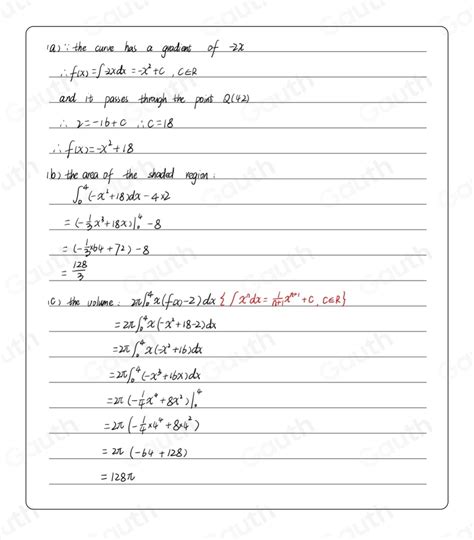 (a) ∵ the curve has a gradient of -2x
∴ f(x) = ∫2xdx = -x² + C , C∈R
and it passes through the point Q(4,2)
∴ 2 = -16 + C ∴ C = 18
∴ f(x) = -x² + 18
(b) the area of the shaded region:
∫₀⁴ (-x² + 18)dx - 4×2
= (-1/3 x³ + 18x)|₀⁴ - 8
= (-1/3 × 64 + 72) - 8
= 128/3
(c) the volume: 2π∫₀⁴ x(f(x) - 2)dx { ∫xⁿdx = 1/(n+1) xⁿ⁺¹ + C, C∈R }
= 2π∫₀⁴ x(-x² + 18 - 2)dx
= 2π∫₀⁴ x(-x² + 16)dx
= 2π∫₀⁴ (-x³ + 16x)dx
= 2π(-1/4 x⁴ + 8x²)|₀⁴
= 2π(-1/4 × 4⁴ + 8×4²)
= 2π(-64 + 128)
= 128π